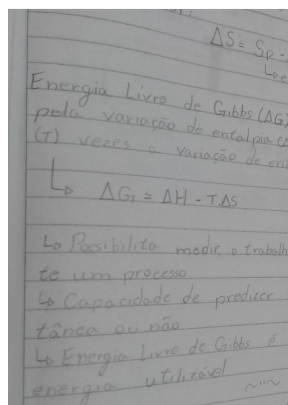 ΔS = Sp -
Energia Livre de Gibbs (ΔG)
pela variação de entalpia (
(T) vezes a variação de en
↳ ΔG = ΔH - T.ΔS
↳ Possibilita medir o trabalh
te um processo
↳ Capacidade de predizer
tânea ou não
↳ Energia Livre de Gibbs é
energia utilizável